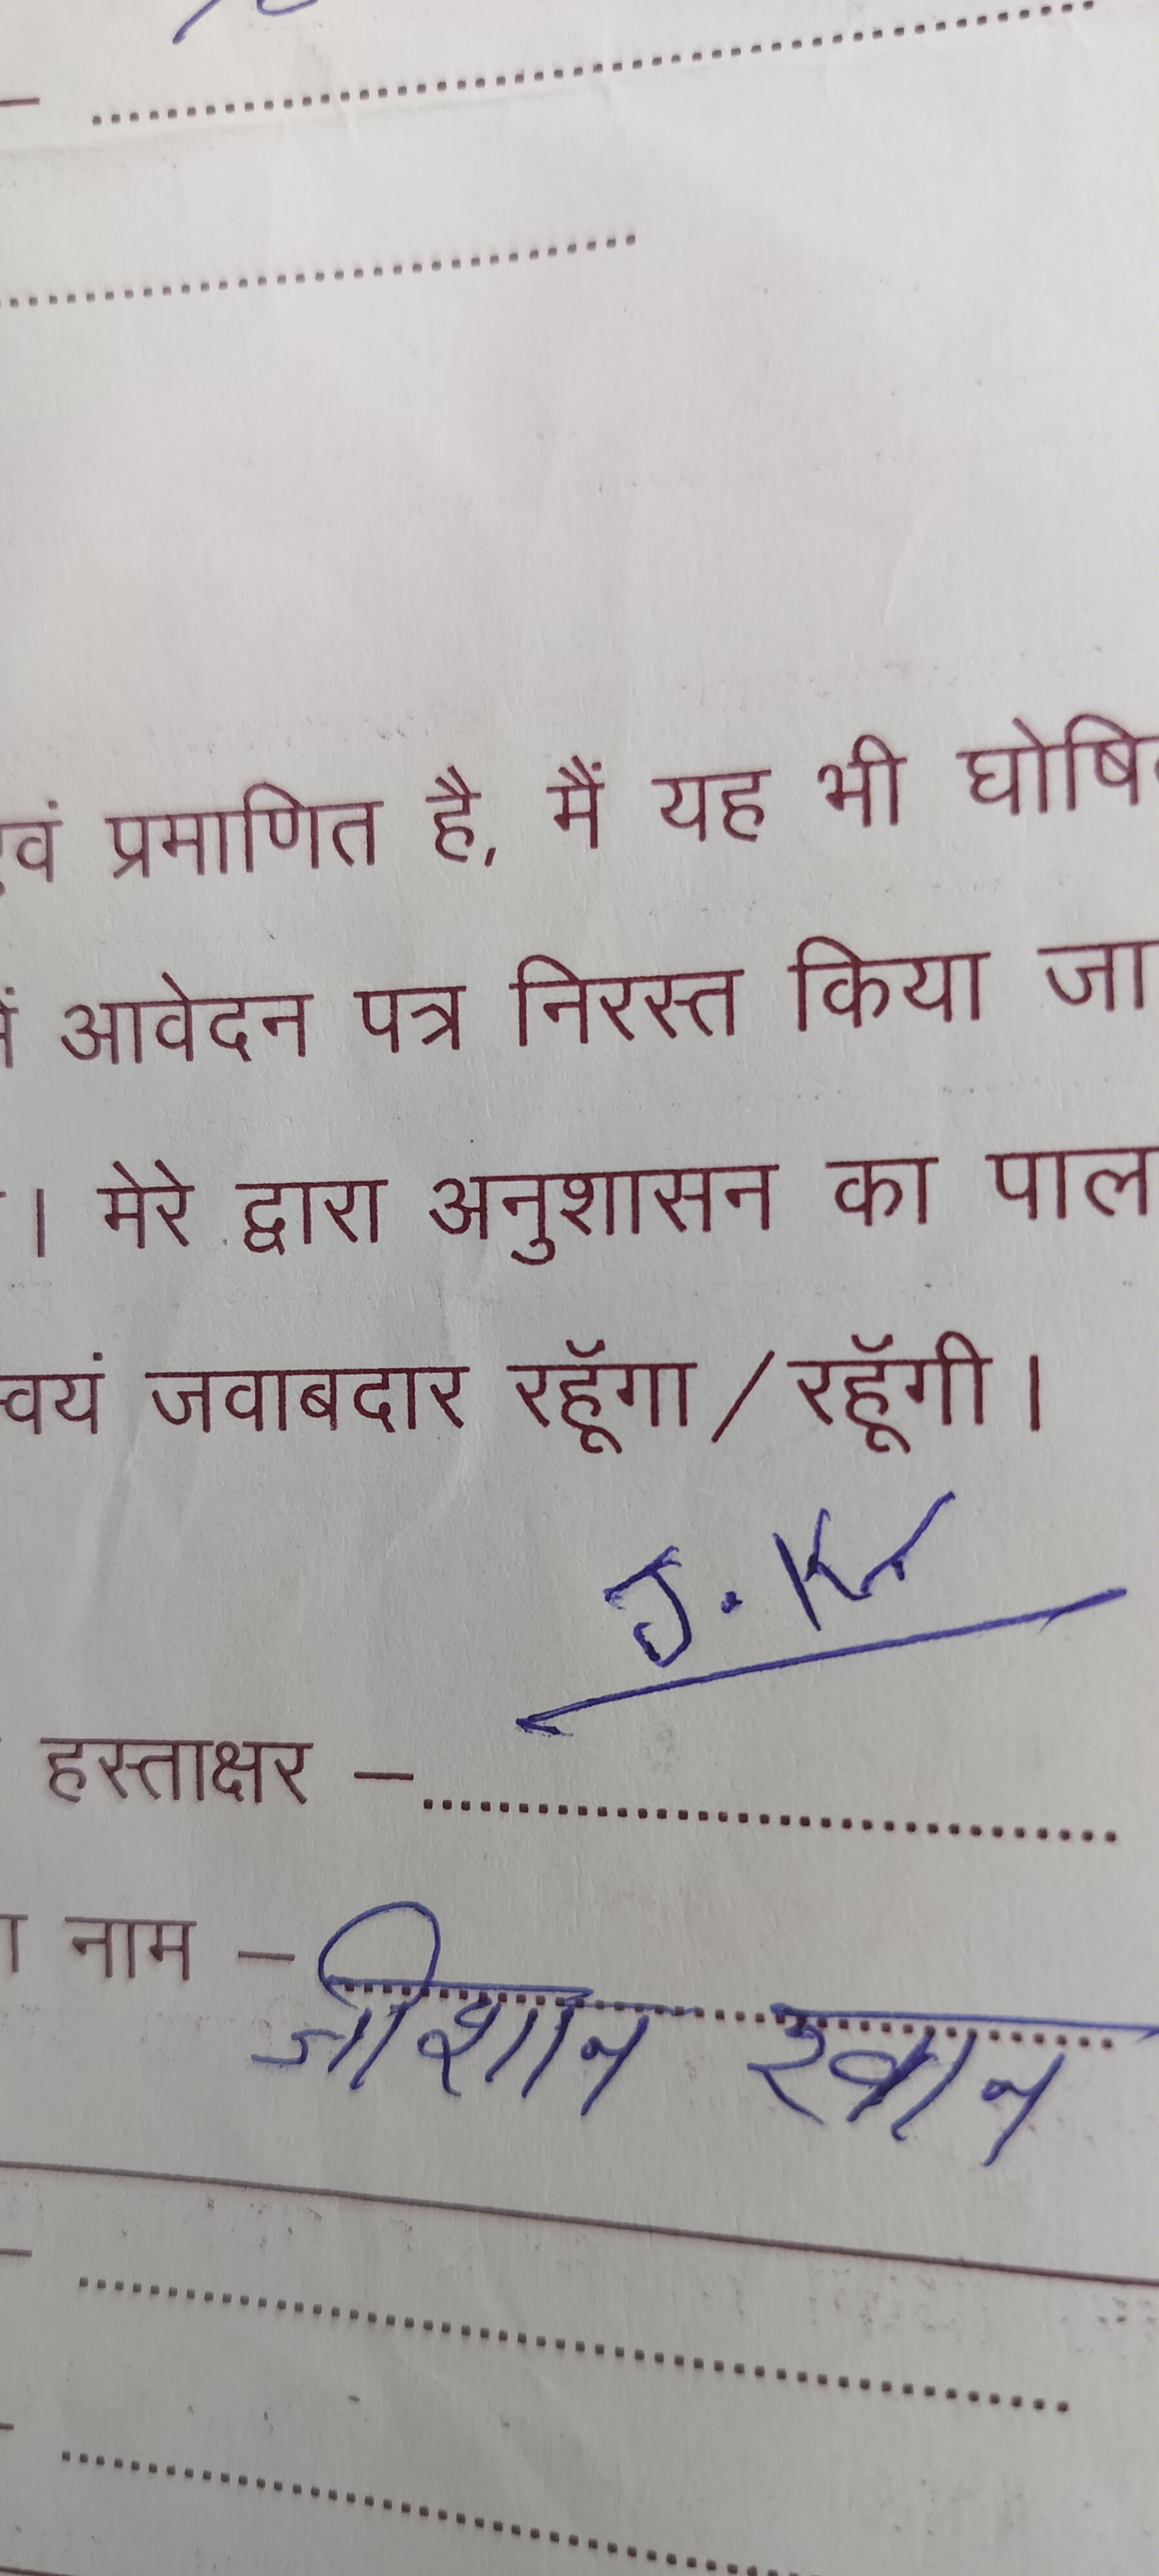 एवं प्रमाणित है, मैं यह भी घोषित
में आवेदन पत्र निरस्त किया जा
। मेरे द्वारा अनुशासन का पाल
स्वयं जवाबदार रहूॅगा / रहूॅगी ।
J. Kr
हस्ताक्षर –
नाम – जीशान खान